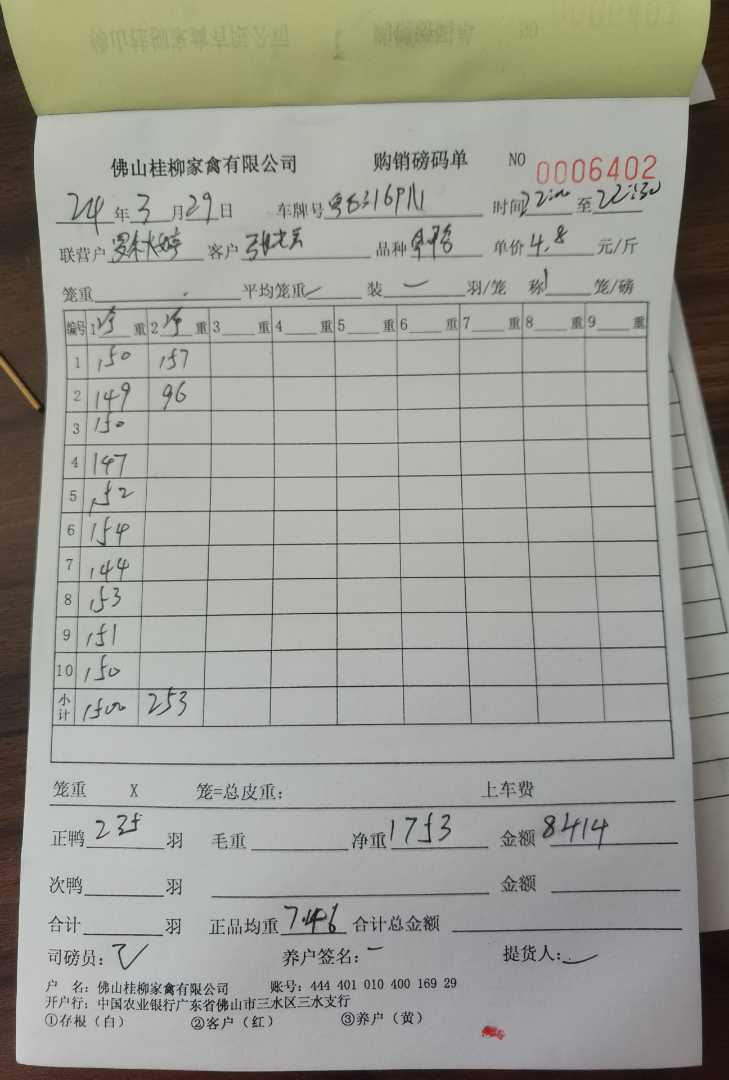 佛山桂柳家禽有限公司 购销磅码单 NO 0006402
24年3月29日 车牌号 时间22:00至22:30
联营户 客户 品种 单价4.8元/斤
笼重 平均笼重 装一羽/笼 称1笼/磅
编号 1净重 2净重 3重 4重 5重 6重 7重 8重 9重
1 150 157
2 149 96
3 150
4 147
5 152
6 154
7 144
8 153
9 151
10 150
小计 1500 253
笼重 X 笼=总皮重: 上车费
正鸭235羽 毛重 净重1753 金额8414
次鸭 羽 金额
合计 羽 正品均重7.46 合计总金额
司磅员: 养户签名: 提货人:
户 名: 佛山桂柳家禽有限公司 账号: 444 401 010 400 169 29
开户行: 中国农业银行广东省佛山市三水区三水支行
①存根（白） ②客户（红） ③养户（黄）